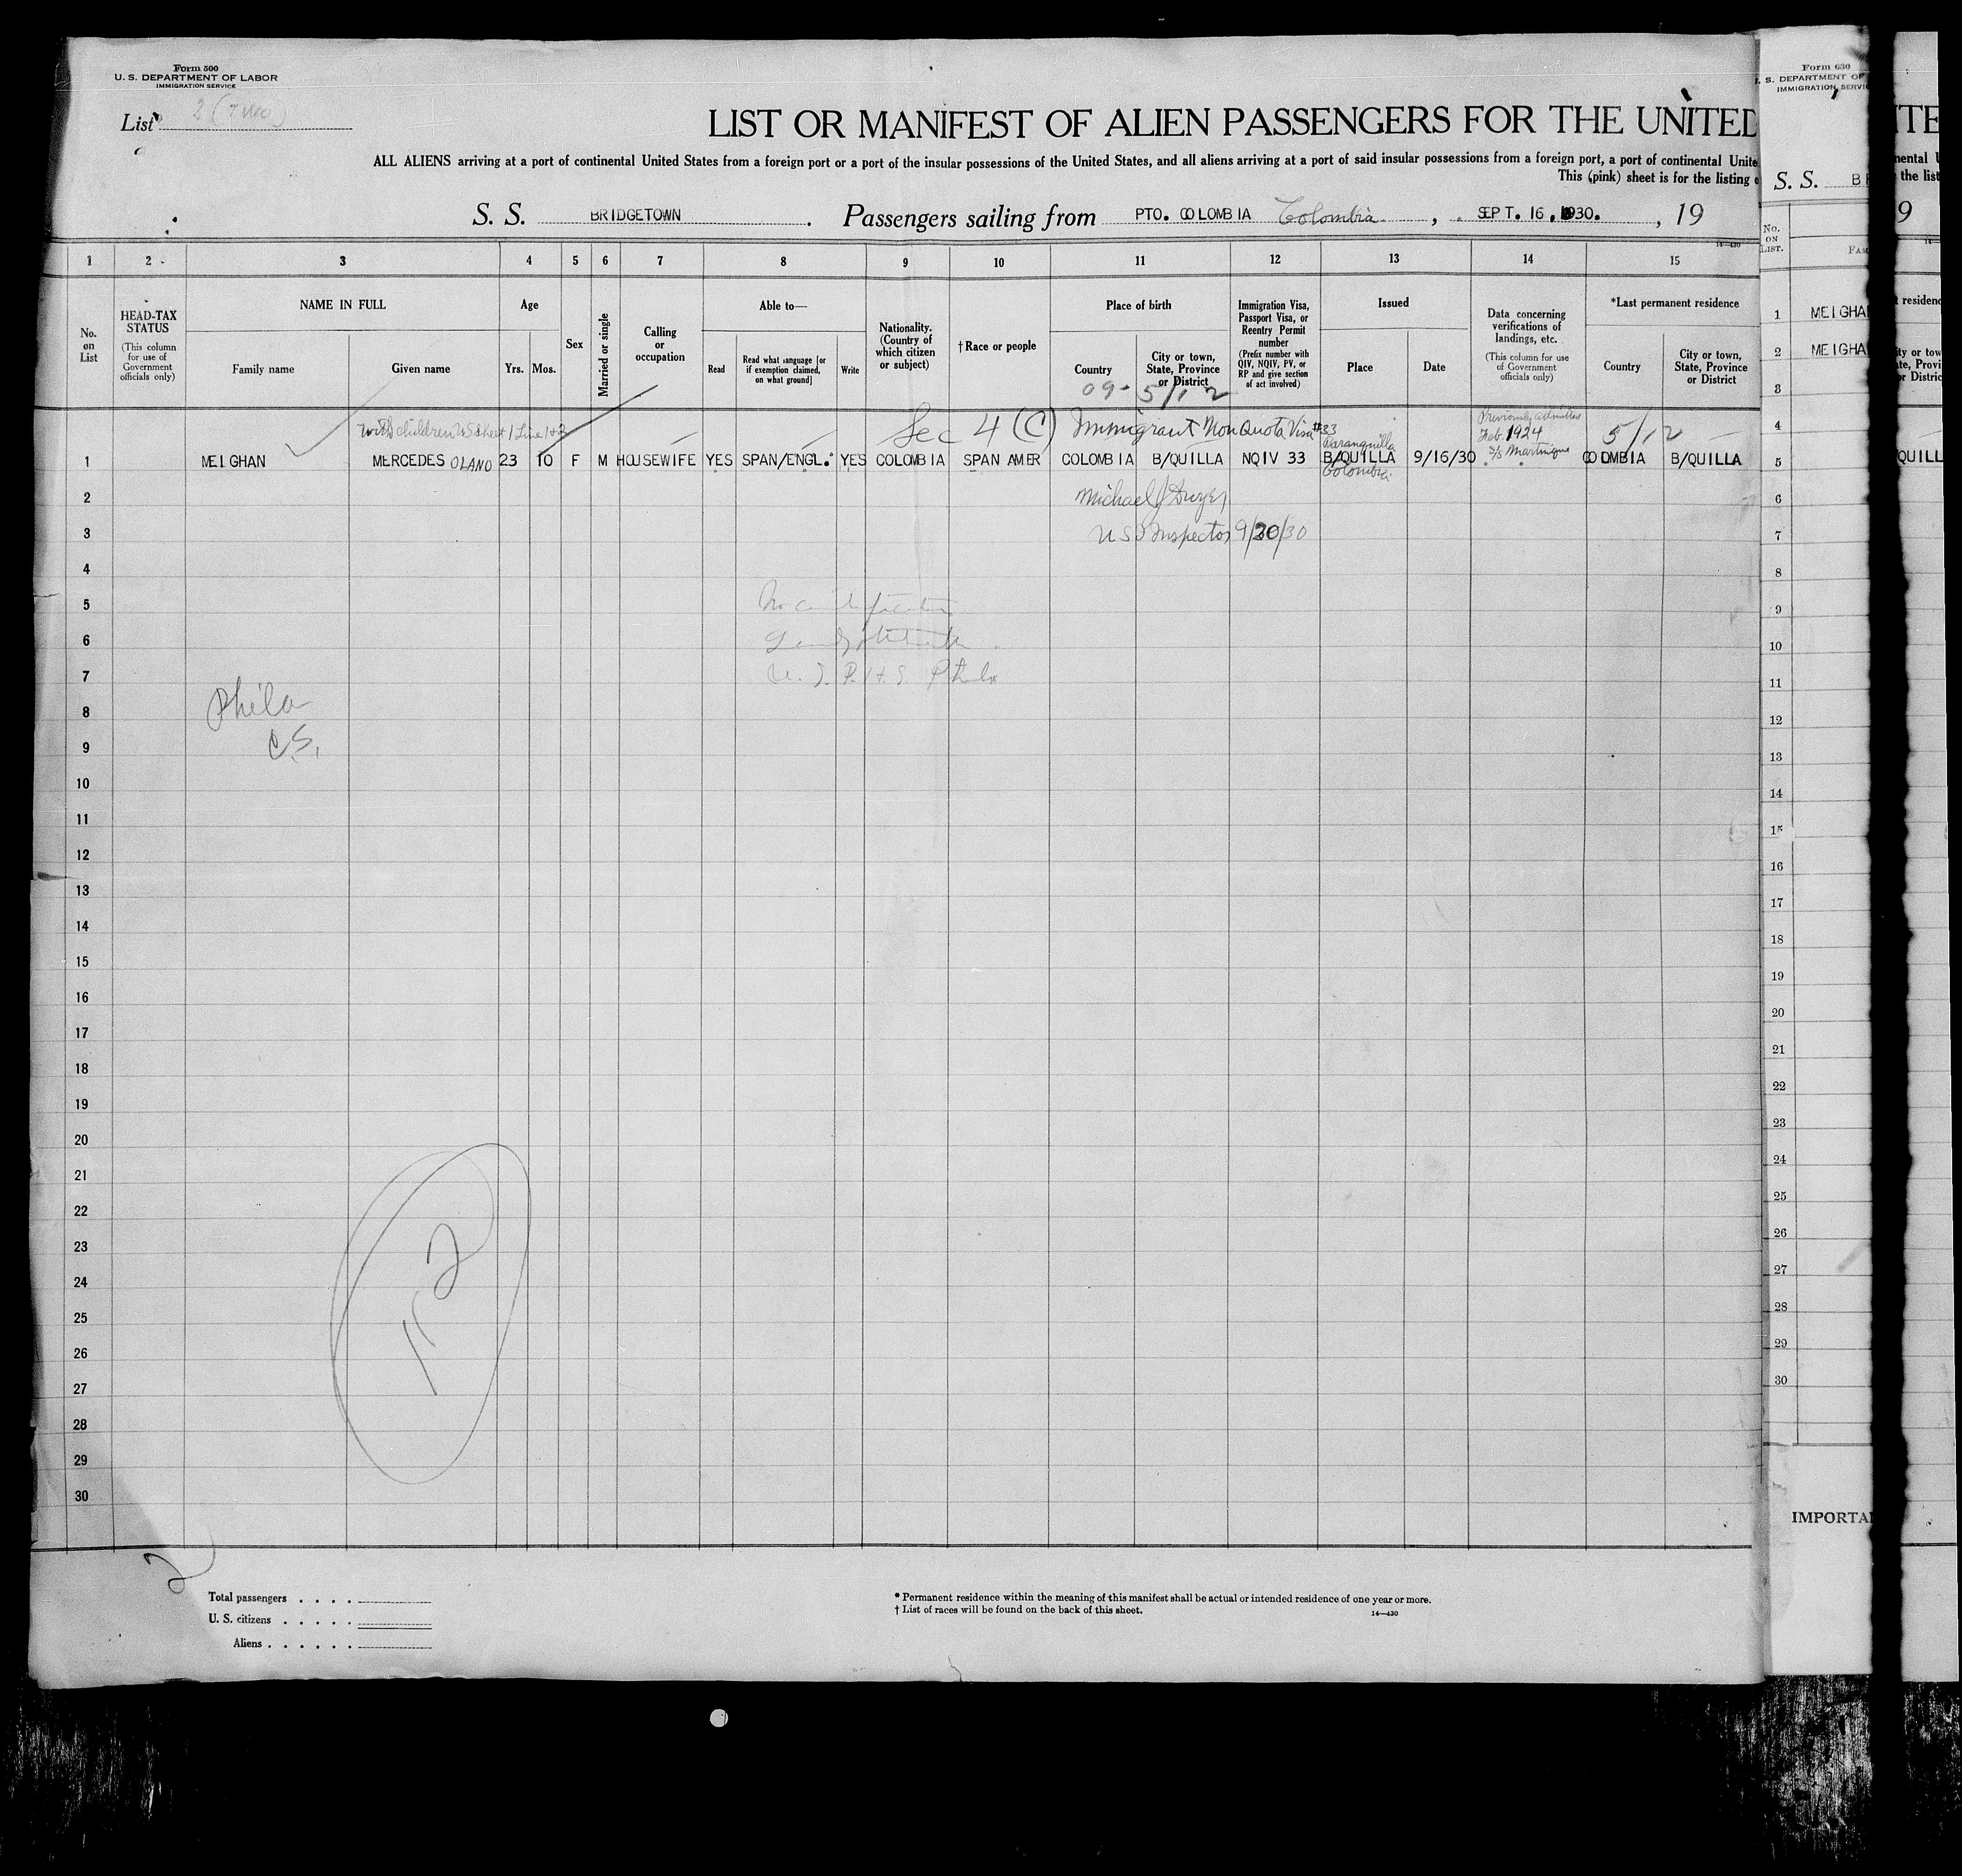 Form 500
U. S. DEPARTMENT OF LABOR
IMMIGRATION SERVICE
List 2 (TWO)
LIST OR MANIFEST OF ALIEN PASSENGERS FOR THE UNITED
ALL ALIENS arriving at a port of continental United States from a foreign port or a port of the insular possessions of the United States, and all aliens arriving at a port of said insular possessions from a foreign port, a port of continental Unite
This (pink) sheet is for the listing
S. S. BRIDGETOWN. Passengers sailing from PTO. COLOMBIA Colombia, SEPT. 16, 1930., 19
14—430
1 2 3 4 5 6 7 8 9 10 11 12 13 14 15
No. on List
HEAD-TAX STATUS
(This column for use of Government officials only)
NAME IN FULL
Family name Given name
Age
Yrs. Mos.
Sex
Married or single
Calling or occupation
Able to—
Read
Read what language [or if exemption claimed, on what ground]
Write
Nationality. (Country of which citizen or subject)
†Race or people
Place of birth
Country
City or town, State, Province or District
Immigration Visa, Passport Visa, or Reentry Permit number
(Prefix number with QIV, NQIV, PV, or RP and give section of act involved)
Issued
Place Date
Data concerning verifications of landings, etc.
(This column for use of Government officials only)
*Last permanent residence
Country
City or town, State, Province or District
09- 5/12
with children US sheet 1 Line 1+2
Sec 4 (C) Immigrant Non Quota Visa #33
Baranquilla
Previously admitted
Feb. 1924
S/S Martinique
5/12
1 MEIGHAN MERCEDES OLANO 23 10 F M HOUSEWIFE YES SPAN/ENGL. YES COLOMBIA SPAN AMER COLOMBIA B/QUILLA NQIV 33 B/QUILLA 9/16/30 COLOMBIA B/QUILLA
Colombia
2 Michael J Dwyer
3 US Inspector 9/30/30
4
5
6
7 U. S. P. H. S. Phila
8 Phila
9 C.S.
10
11
12
13
14
15
16
17
18
19
20
21
22
23
24
25
26
27
28
29
30
2
Total passengers
U. S. citizens
Aliens
* Permanent residence within the meaning of this manifest shall be actual or intended residence of one year or more.
† List of races will be found on the back of this sheet.
14—430
Form 630
S. DEPARTMENT OF
IMMIGRATION SERVIC
S. S. B
No. ON LIST.
FAM
1 MEIGHA
2 MEIGHA
3
4
5
6
7
8
9
10
11
12
13
14
15
16
17
18
19
20
21
22
23
24
25
26
27
28
29
30
IMPORTA
ITE
nental U
the list
9
t residenc
ity or tow
te, Provi
r Distric
QUILL